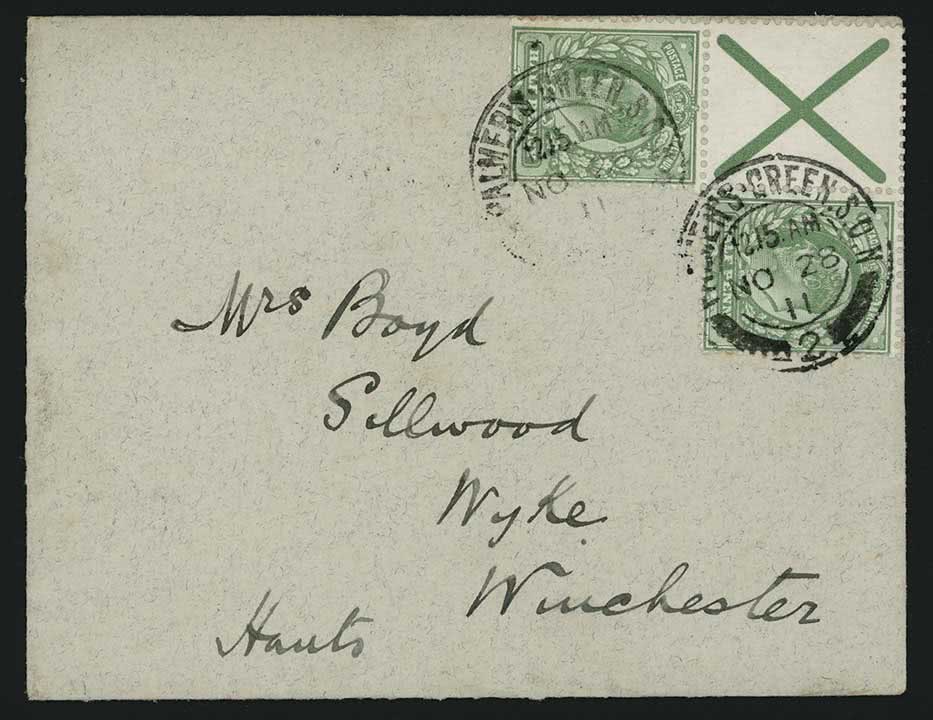 POSTAGE
PALMERS·GREEN.S.O
12.15.AM
NO
11
PALMERS·GREEN.S.O.N
12.15.AM
NO 28
11
2
Mrs Boyd
Sillwood
Wyke
Winchester
Hants